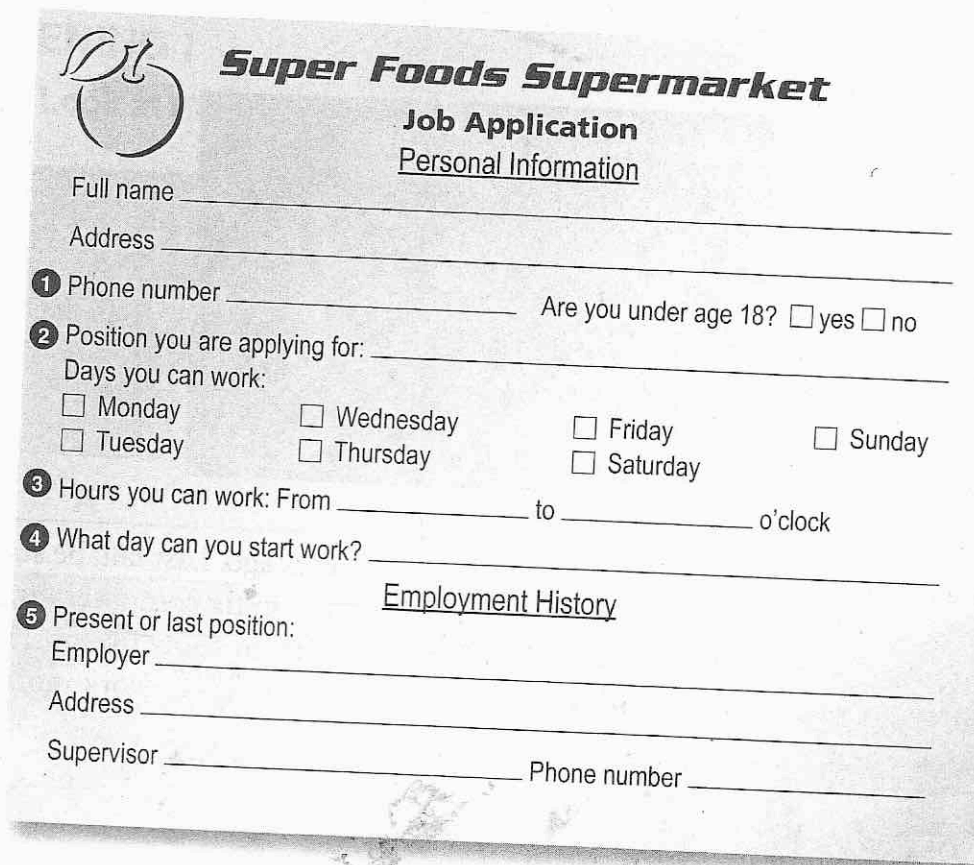 Super Foods Supermarket
Job Application
Personal Information
Full name
Address
1 Phone number Are you under age 18? yes no
2 Position you are applying for:
Days you can work:
Monday Wednesday Friday Sunday
Tuesday Thursday Saturday
3 Hours you can work: From to o'clock
4 What day can you start work?
Employment History
5 Present or last position:
Employer
Address
Supervisor Phone number